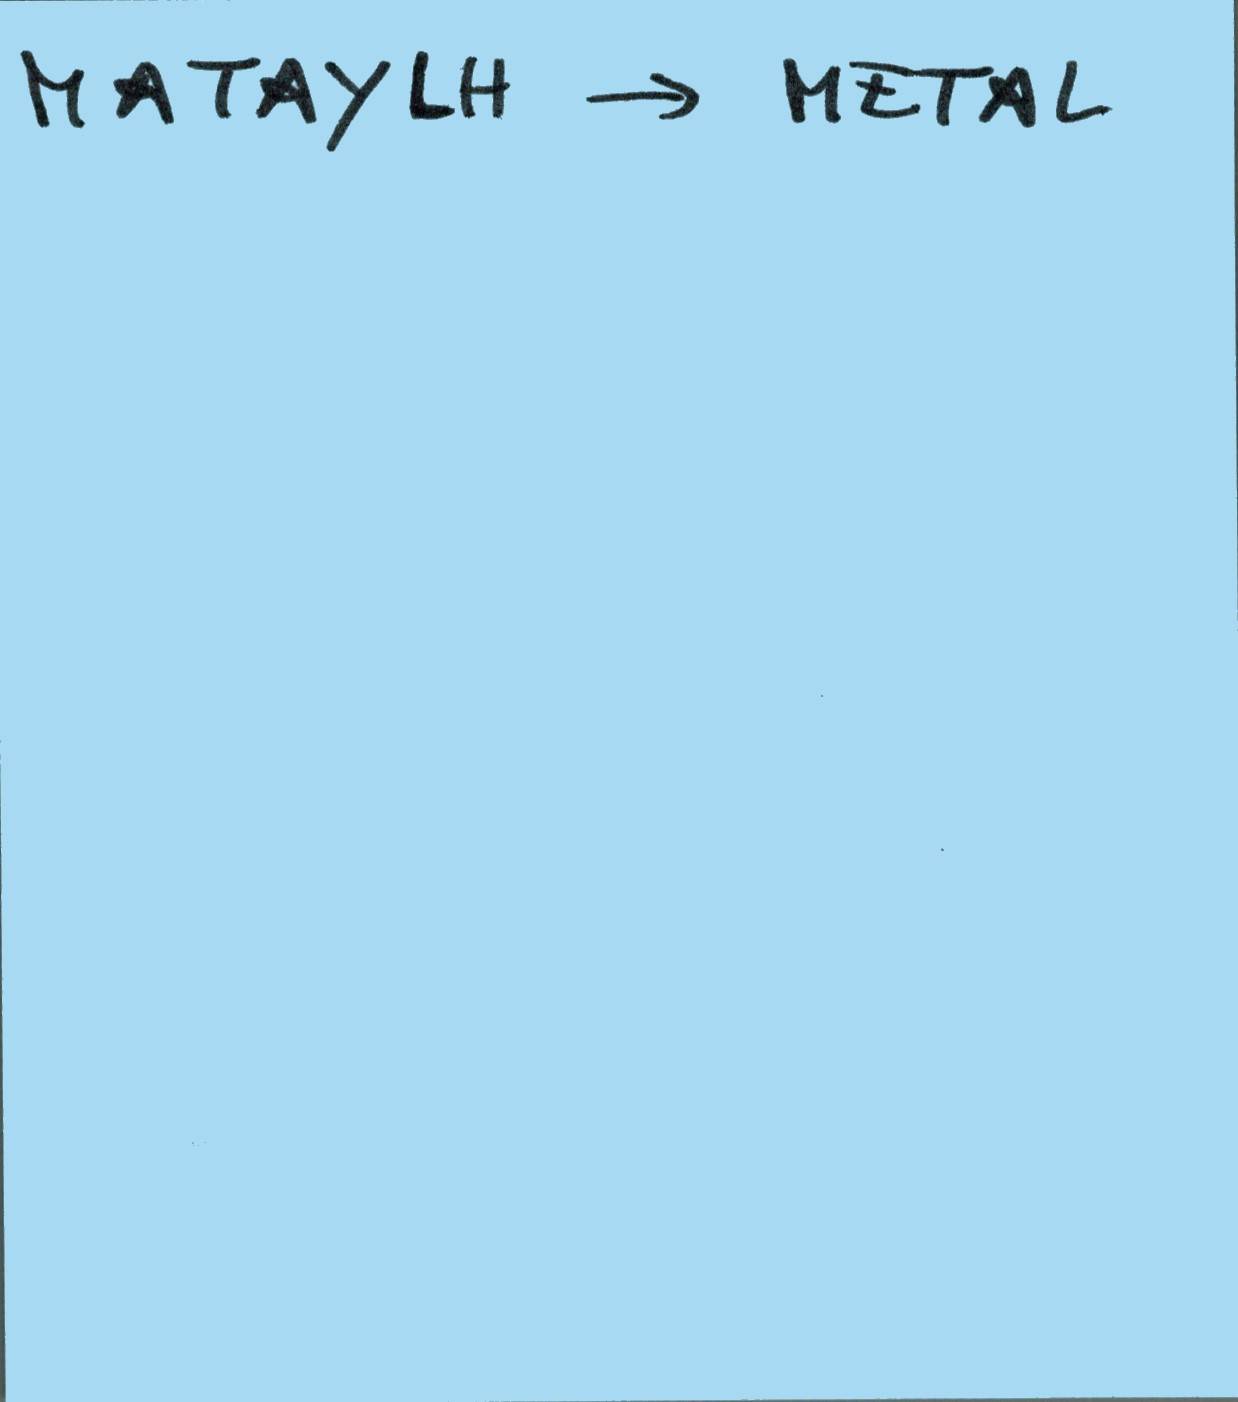 MATAYLH → METAL